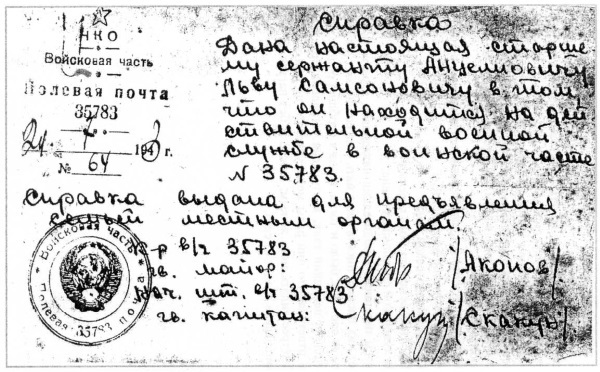 Справка
НКО
Войсковая часть
Полевая почта
35783
194 г.
№ 64
Дана настоящая старше-
му сержанту Анцелиовичу
Льву Самсоновичу в том,
что он находится на дей
ствительной военной
службе в воинской часте
N 35783.
Справка выдана для предъявления
семьей местным органам.
К-р в/ч 35783
гв. майор: /Яконов/
Нач. шт. в/ч 35783
гв. капитан: /Скакун/
Войсковая часть
Полевая 35783 почта